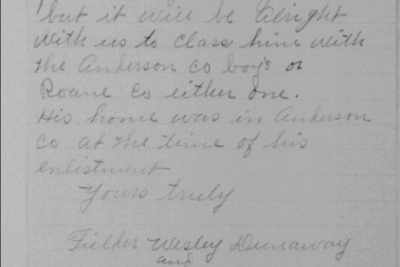 but it will be alright
with us to class him with
the Anderson co boy's or
Roane Co either one.
His home was in Anderson
co at the time of his
enlistment
Yours truly
Fielder Wesley Dunaway
and